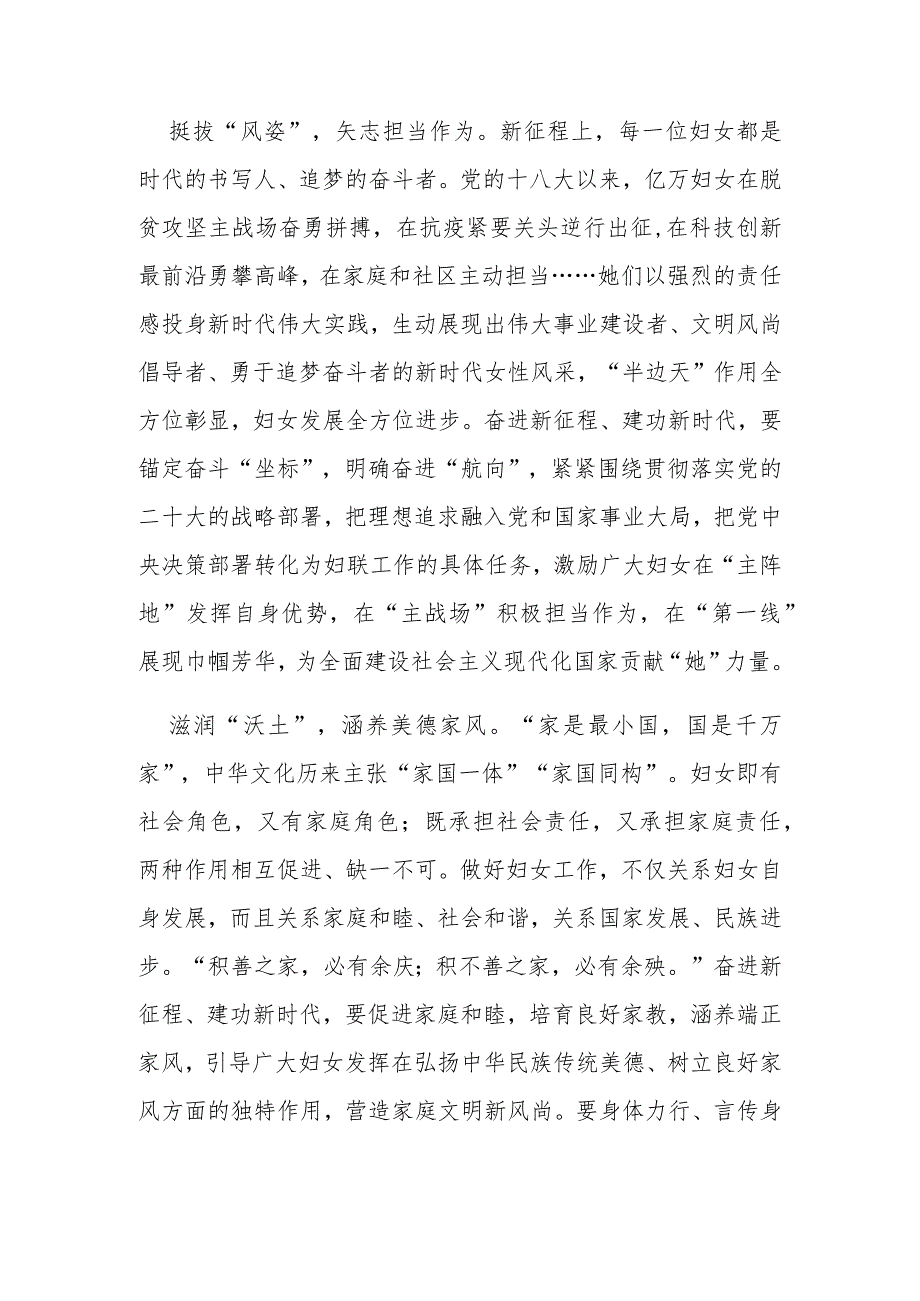 挺拔“风姿”，矢志担当作为。新征程上，每一位妇女都是
时代的书写人、追梦的奋斗者。党的十八大以来，亿万妇女在脱
贫攻坚主战场奋勇拼搏，在抗疫紧要关头逆行出征,在科技创新
最前沿勇攀高峰，在家庭和社区主动担当……她们以强烈的责任
感投身新时代伟大实践，生动展现出伟大事业建设者、文明风尚
倡导者、勇于追梦奋斗者的新时代女性风采，“半边天”作用全
方位彰显，妇女发展全方位进步。奋进新征程、建功新时代，要
锚定奋斗“坐标”，明确奋进“航向”，紧紧围绕贯彻落实党的
二十大的战略部署，把理想追求融入党和国家事业大局，把党中
央决策部署转化为妇联工作的具体任务，激励广大妇女在“主阵
地”发挥自身优势，在“主战场”积极担当作为，在“第一线”
展现巾帼芳华，为全面建设社会主义现代化国家贡献“她”力量。
滋润“沃土”，涵养美德家风。“家是最小国，国是千万
家”，中华文化历来主张“家国一体”“家国同构”。妇女即有
社会角色，又有家庭角色；既承担社会责任，又承担家庭责任，
两种作用相互促进、缺一不可。做好妇女工作，不仅关系妇女自
身发展，而且关系家庭和睦、社会和谐，关系国家发展、民族进
步。“积善之家，必有余庆；积不善之家，必有余殃。”奋进新
征程、建功新时代，要促进家庭和睦，培育良好家教，涵养端正
家风，引导广大妇女发挥在弘扬中华民族传统美德、树立良好家
风方面的独特作用，营造家庭文明新风尚。要身体力行、言传身